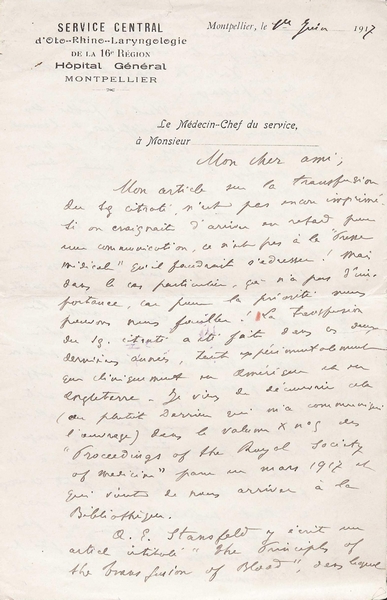 SERVICE CENTRAL
d'Oto-Rhino-Laryngologie
DE LA 16e RÉGION
Hôpital Général
MONTPELLIER
Montpellier, le 1er Juin 1917
Le Médecin-Chef du service,
à Monsieur
Mon cher ami,
Mon article sur la transfusion
du sg citraté, n'est pas encore imprimé.
Si on craignait d'arriver en retard pour
une communication, ce n'est pas à la "Presse
médicale" qu'il faudrait s'adresser ! Mais
dans le cas particulier, ça n'a pas d'im-
portance, car pour la priorité nous
pouvons nous fouiller ! La transfusion
du sg. citraté a été faite dans ces deux
dernières années, tant expérimentalement
que cliniquement en Amérique et en
Angleterre. Je viens de découvrir cela
(ou plutôt Derrien qui m'a communiqué
l'ouvrage) dans le volume X nº 5 des
"Proceedings of the Royal Society
of medicine" paru en mars 1917 et
qui vient de nous arriver à la
Bibliothèque.
A. E. Stansfeld y écrit un
article intitulé "The Principles of
the transfusion of Blood", dans lequel